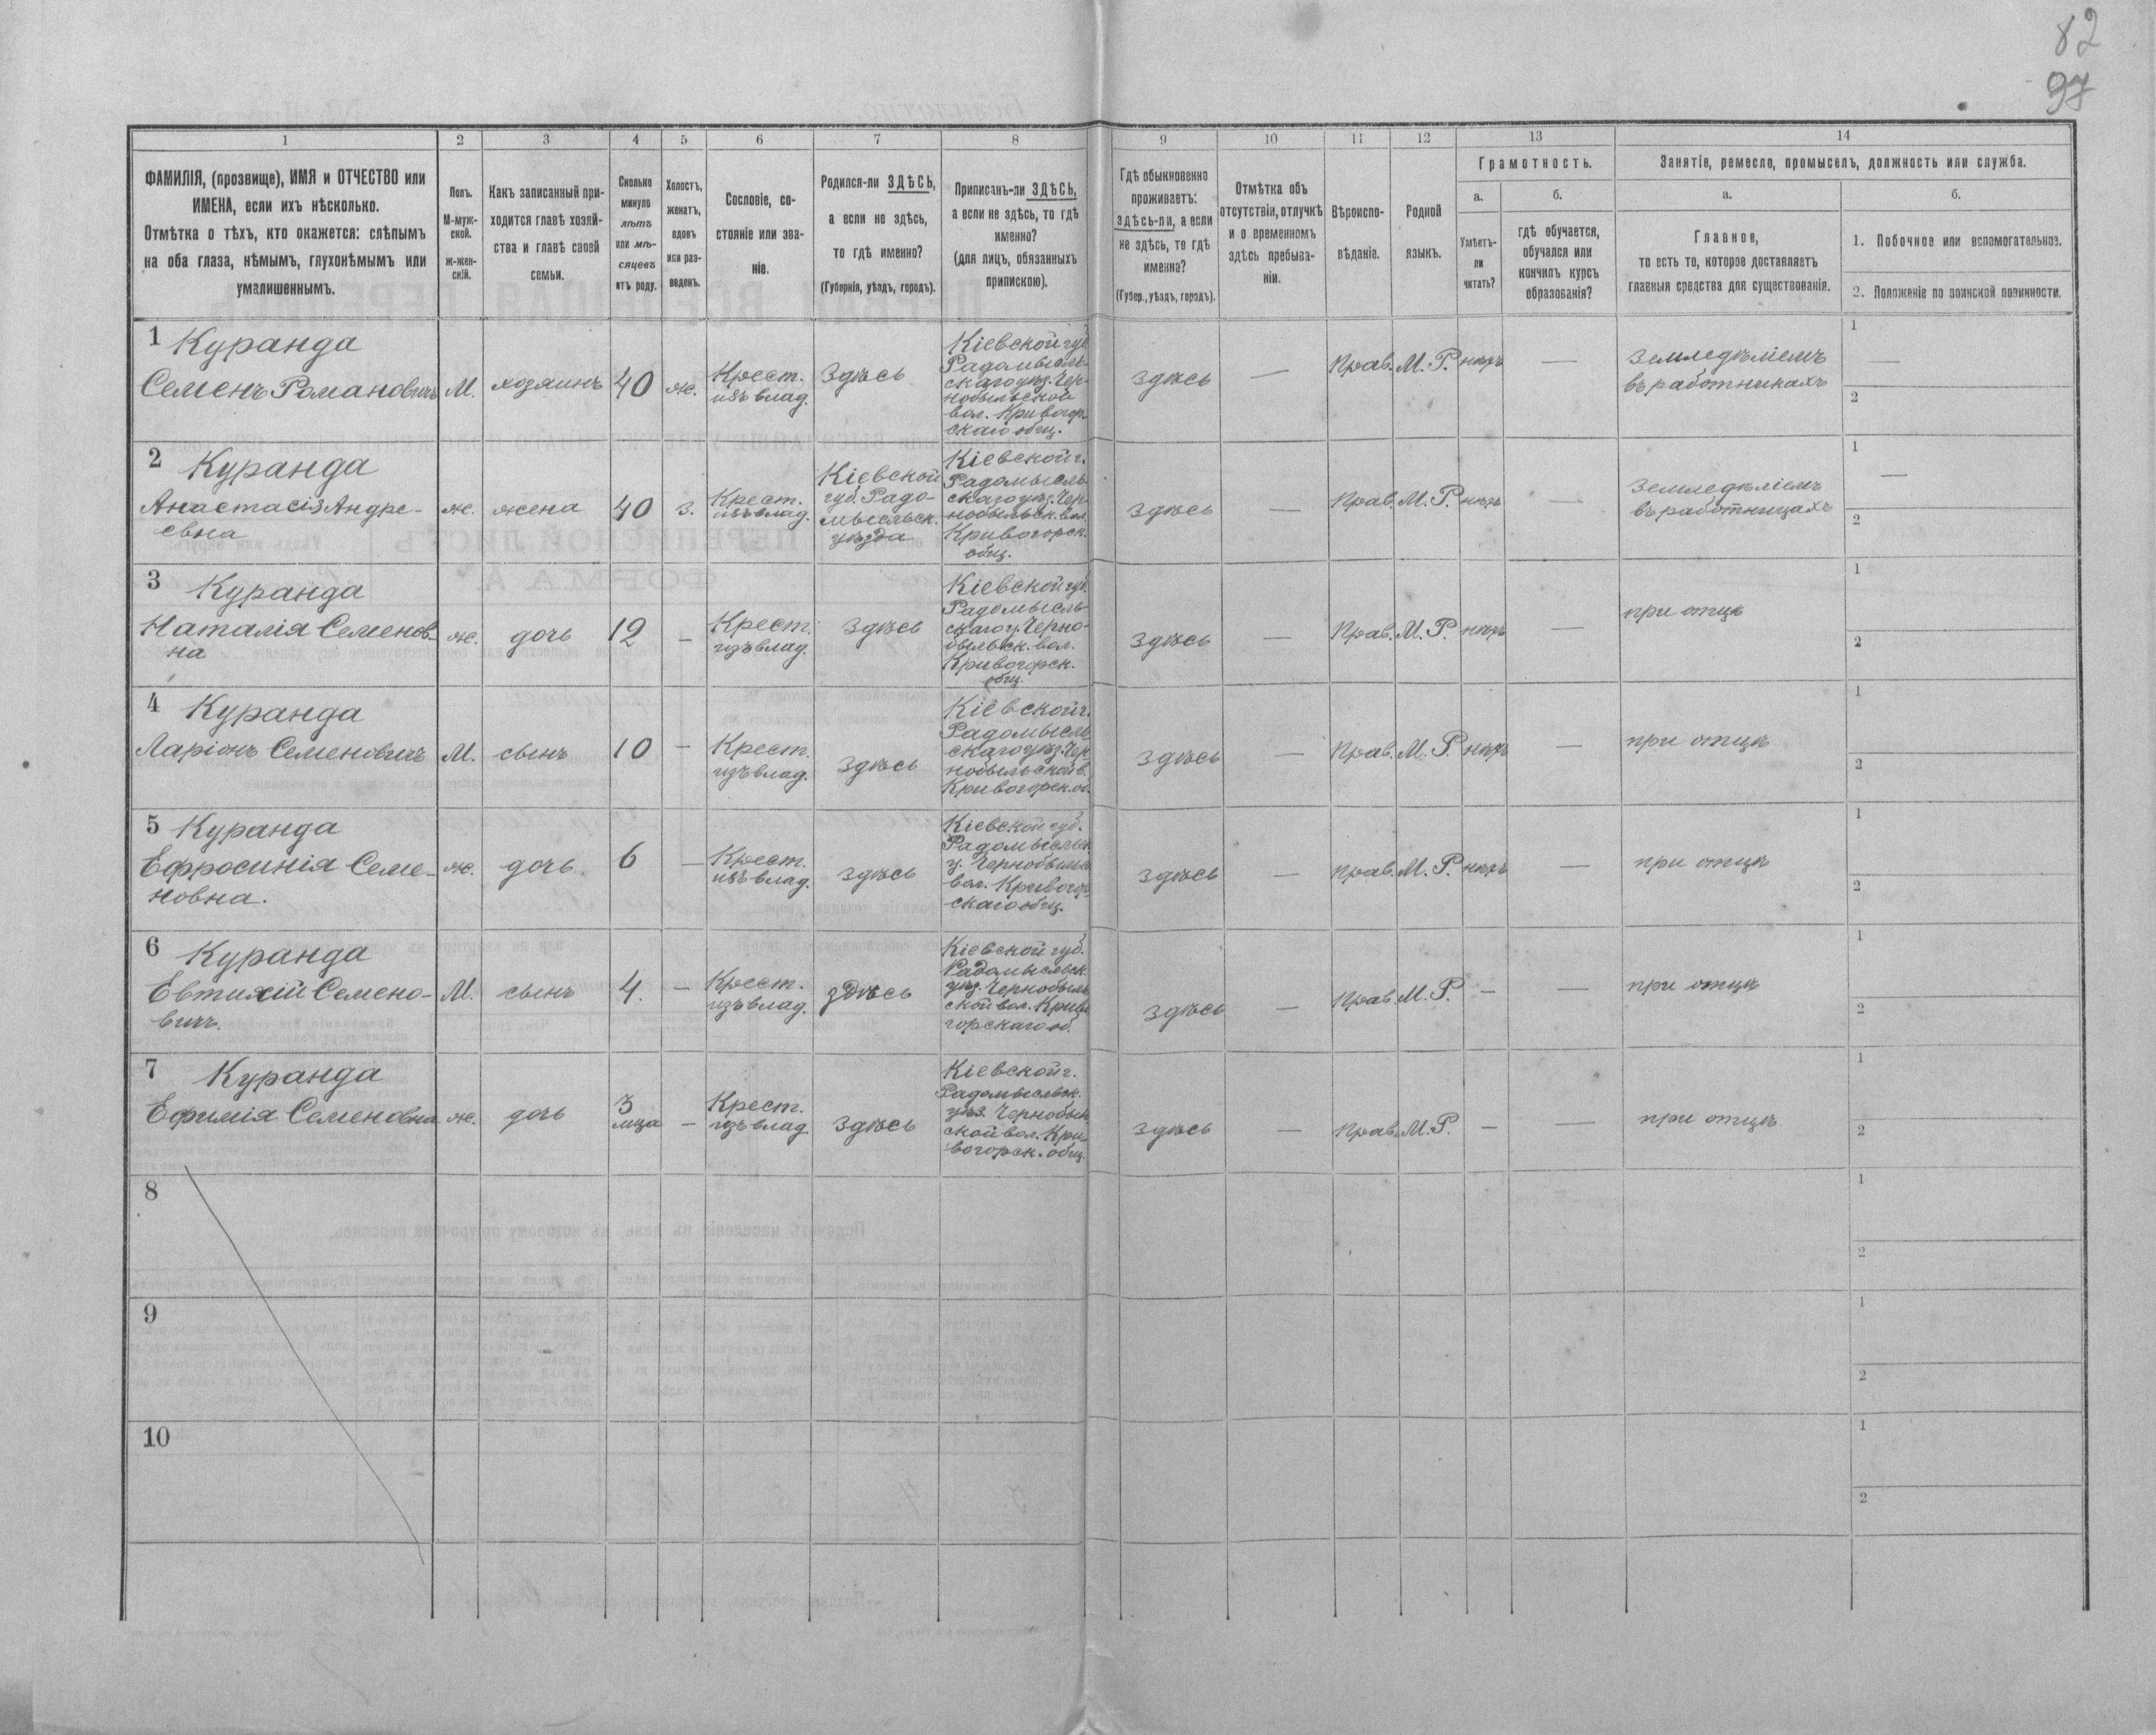 82
97
1 2 3 4 5 6 7 8 9 10 11 12 13 14
ФАМИЛІЯ, (прозвище), ИМЯ и ОТЧЕСТВО или
ИМЕНА, если ихъ нѣсколько.
Отмѣтка о тѣхъ, кто окажется: слѣпымъ
на оба глаза, нѣмымъ, глухонѣмымъ или
умалишеннымъ.
Полъ.
М-муж-
ской.
Ж-жен-
скій.
Какъ записанный при-
ходится главѣ хозяй-
ства и главѣ своей
семьи.
Сколько
минуло
лѣтъ
или мѣ-
сяцевъ
отъ роду.
Холостъ,
женатъ,
вдовъ
или раз-
веденъ.
Сословіе, со-
стояніе или зва-
ніе.
Родился-ли ЗДѢСЬ,
а если не здѣсь,
то гдѣ именно?
(Губернія, уѣздъ, городъ).
Приписанъ-ли ЗДѢСЬ,
а если не здѣсь, то гдѣ
именно?
(для лицъ, обязанныхъ
припискою).
Гдѣ обыкновенно
проживаетъ:
здѣсь-ли, а если
не здѣсь, то гдѣ
именно?
(Губер., уѣздъ, городъ).
Отмѣтка объ
отсутствіи, отлучкѣ
и о временномъ
здѣсь пребыва-
ніи.
Вѣроиспо-
вѣданіе.
Родной
языкъ.
Грамотность.
а.
Умѣетъ-
ли
читать?
б.
гдѣ обучается,
обучался или
кончилъ курсъ
образованія?
Занятіе, ремесло, промыселъ, должность или служба.
а.
Главное,
то есть то, которое доставляетъ
главныя средства для существованія.
б.
1. Побочное или вспомогательное.
2. Положеніе по воинской повинности.
1 Куранда
Семенъ Романовичъ
М.
хозяинъ
40
ж.
Крест.
изъ влад.
Здѣсь
Кіевской губ
Радомысль-
скаго уѣз. Чер-
нобыльской
вол. Кривогор-
скаго общ.
здѣсь
—
Прав.
М. Р.
нѣтъ
—
Земледѣліемъ
въ работникахъ
1
—
2
2 Куранда
Анастасія Андре-
евна
ж.
жена
40
з.
Крест.
изъ влад.
Кіевской
губ. Радо-
мысльск.
уѣзда
Кіевской г.
Радомысль-
скаго уѣз. Чер-
нобыльск. вол.
Кривогорск.
общ.
здѣсь
—
Прав.
М. Р.
нѣтъ
—
Земледѣліемъ
въ работницахъ
1
—
2
3 Куранда
Наталія Семенов-
на
ж.
дочь
12
—
Крест.
изъ влад.
Здѣсь
Кіевской губ.
Радомысль-
скаго у. Черно-
быльск. вол.
Кривогорск.
общ.
здѣсь
—
Прав.
М. Р.
нѣтъ
—
при отцѣ
1
2
4 Куранда
Ларіонъ Семеновичъ
М.
сынъ
10
—
Крест.
изъ влад.
Здѣсь
Кіевской г.
Радомысль
скаго уѣз. Чер
нобыльской в.
Кривогорск. об.
здѣсь
—
Прав.
М. Р.
нѣтъ
—
при отцѣ
1
2
5 Куранда
Ефросинія Семе-
новна.
ж.
дочь
6
—
Крест.
изъ влад.
здѣсь
Кіевской губ.
Радомысльск
у. Чернобыльс
вол. Кривогор
скаго общ.
здѣсь
—
прав.
М. Р.
нѣтъ
—
при отцѣ
1
2
6 Куранда
Евтихій Семено-
вичъ.
М.
сынъ
4.
—
Крест.
изъ влад.
здѣсь
Кіевской губ.
Радомысльск.
уѣз. Чернобыль
ской вол. Криво
горскаго об.
здѣсь
—
Прав.
М. Р.
—
—
при отцѣ
1
2
7 Куранда
Ефимія Семеновна
ж.
дочь
3
мца
—
Крест.
изъ влад
Здѣсь
Кіевской г.
Радомысльск.
уѣз. Чернобыль
ской вол. Кри
вогорск. общ.
здѣсь
—
Прав.
М. Р.
—
—
при отцѣ
1
2
8
1
2
9
1
2
10
1
2